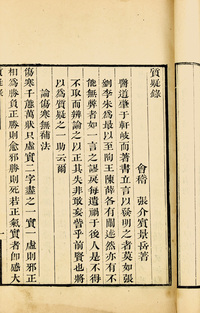 質疑錄
會稽 張介賓景岳著
醫道肇于軒岐而著書立言以發明之者莫如張
劉李朱爲最以至陶王陳薛各有闡述然亦有不
能無弊者如一言之謬戾每遺禍于後人是不得
不取而辨論之以正其失非敢妄訾乎前賢也將
以爲質疑之一助云爾
論傷寒無補法
傷寒千態萬狀只虛實二字盡之一實一虛則邪正
相爲勝負正勝則愈邪勝則死若正氣實者卽感大